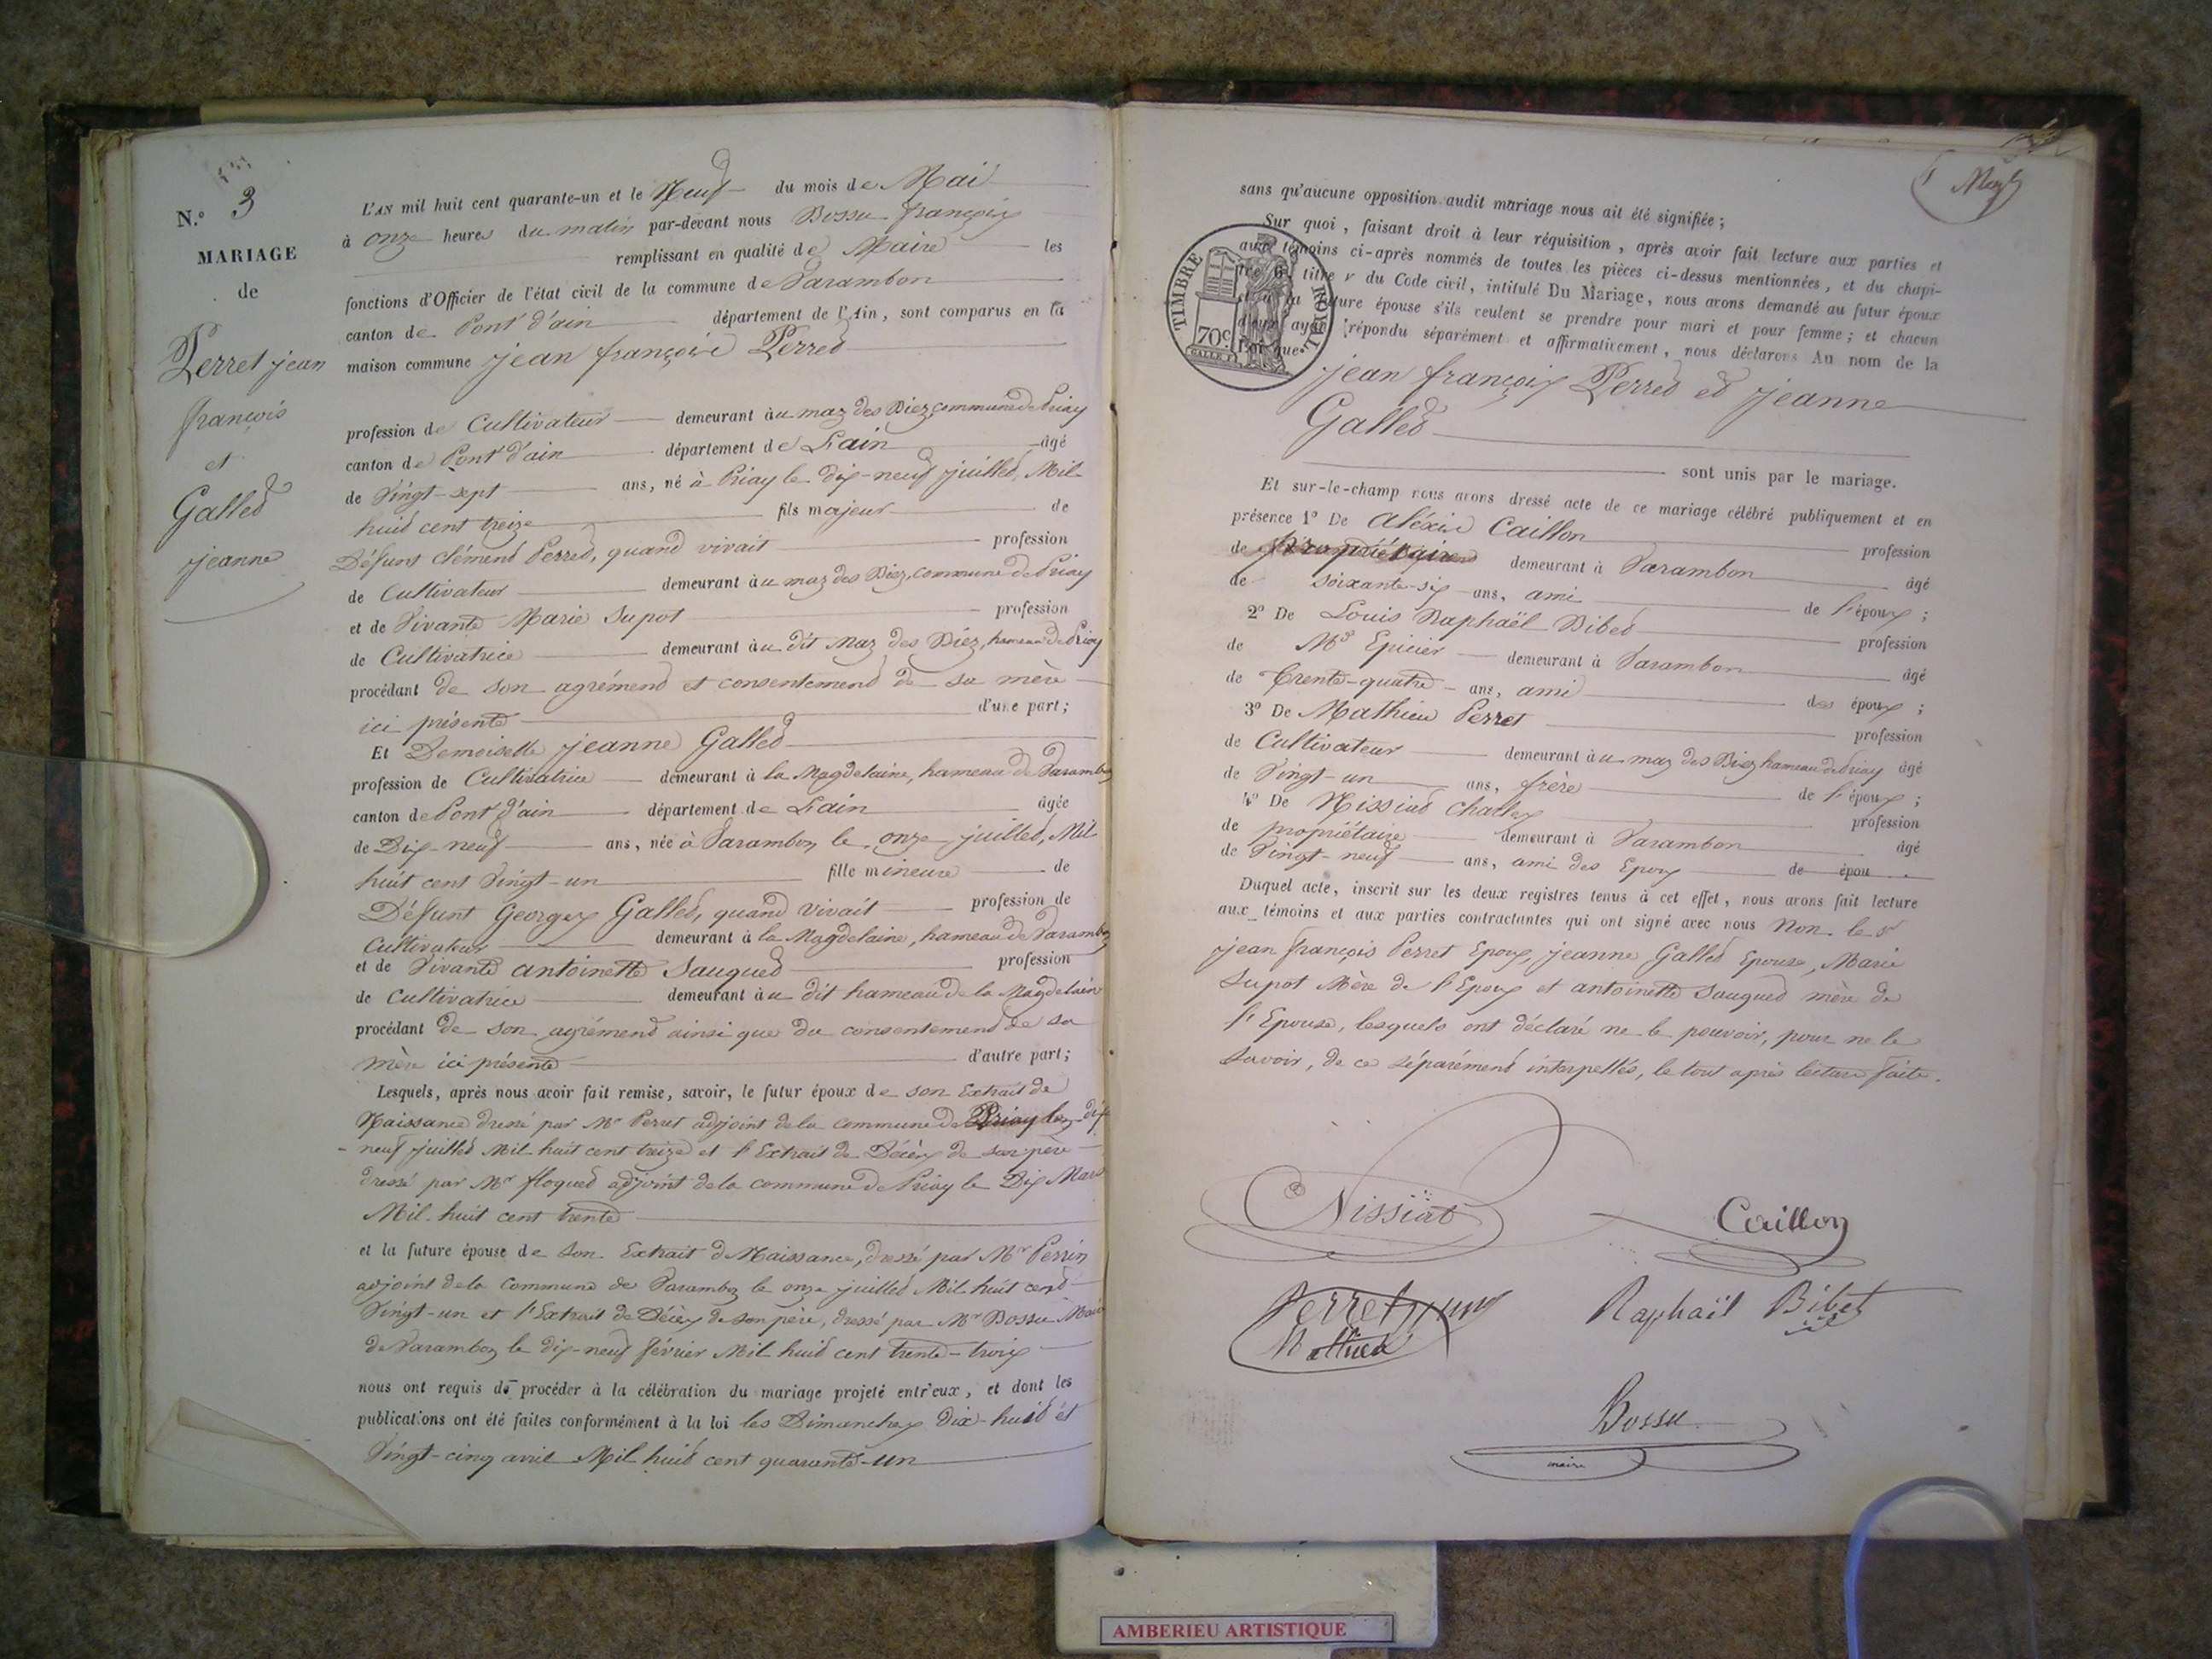 N.° 3
MARIAGE
de
Perret jean
françois
et
Galled
jeanne
L'AN mil huit cent quarante-un et le Neuf du mois de Mai
à onze heures du matin par-devant nous Bossu françois
remplissant en qualité de Maire les
fonctions d'Officier de l'état civil de la commune de Varambon
canton de Pont d'ain département de l'Ain, sont comparus en la
maison commune jean françois Perred
profession de Cultivateur demeurant au maz des Diez commune de Priay
canton de Pont d'ain département de L'ain âgé
de Vingt-sept ans, né à Priay le dix-neuf juilled, Mil
huid cent treize fils majeur de
Défunt Clémend Perred, quand vivait profession
de Cultivateur demeurant au maz des Diez, commune de Priay
et de Vivante Marie Supot profession
de Cultivatrice demeurant au dit Maz des Diéz, hameau de Priay
procédant de son agrémend et consentemend de sa mère
ici présente d'une part;
Et Demoiselle jeanne Galled
profession de Cultivatrice demeurant à la Magdelaine, hameau de Varambon
canton de Pont d'ain département de L'ain âgée
de Dix-neuf ans, née à Varambon le onze juilled, Mil
huit cent Vingt-un fille mineure de
Défunt Georges Galled, quand vivait profession de
Cultivateur demeurant à la Magdelaine, hameau de Varambon
et de Vivante antoinette Sauqued profession
de Cultivatrice demeurant au dit hameau de la Magdelaine
procédant de son agrémend ainsi que du consentemend de sa
mère ici présente d'autre part;
Lesquels, après nous avoir fait remise, savoir, le futur époux de son Extrait de
Naissance dressé par Mr Perret adjoint de la commune de Priay le dix
neuf juilled Mil huit cent treize et l'Extrait de Décès de son père
dressé par Mr floqued adjoint de la commune de Priay le Dix Mars
Mil huit cent trente
et la future épouse de Son Extrait de Naissance, dressé par Mr Perrin
adjoint de la Commune de Varambon le onze juilled Mil huit cend
Vingt-un et l'Extrait de Décès de son père, dressé par Mr Bossu Maire
de Varambon le dix-neuf février Mil huid cent trente-trois
nous ont requis de procéder à la célébration du mariage projeté entr'eux, et dont les
publications ont été faites conformément à la loi les Dimanches dix-huid et
Vingt-cinq avril Mil huid cent quarante-un
sans qu'aucune opposition audit mariage nous ait été signifiée;
Sur quoi, faisant droit à leur réquisition, après avoir fait lecture aux parties et
aux témoins ci-après nommés de toutes les pièces ci-dessus mentionnées, et du chapi-
tre 6, titre v du Code civil, intitulé Du Mariage, nous avons demandé au futur époux
et à la future épouse s'ils veulent se prendre pour mari et pour femme; et chacun
d'eux ayant répondu séparément et affirmativement, nous déclarons Au nom de la
Loi que
TIMBRE ROYAL
70c.
jean françois Perred et jeanne
Galled
sont unis par le mariage.
Et sur-le-champ nous avons dressé acte de ce mariage célébré publiquement et en
présence 1° De aléxis Caillon profession
de propriétaire demeurant à Varambon âgé
de soixante-six ans, ami de l'époux;
2° De Louis Raphaël Bibed profession
de Md Epicier demeurant à Varambon âgé
de Trente-quatre ans, ami des époux;
3° De Mathieu Perret profession
de Cultivateur demeurant au maz des Diez hameau de Priay âgé
de Vingt-un ans, frère de l'époux;
4° De Nissiad Charles profession
de propriétaire demeurant à Varambon âgé
de Vingt-neuf ans, ami des Epoux de épou
Duquel acte, inscrit sur les deux registres tenus à cet effet, nous avons fait lecture
aux témoins et aux parties contractantes qui ont signé avec nous Non le sr
jean françois Perret Epoux, jeanne Galled Epouse, Marie
Supot Mère de l'Epoux et antoinette Sauqued mère de
l'Epouse, lesquels ont déclaré ne le pouvoir, pour ne le
savoir, de ce séparémend interpellés, le tout après lecture faite.
Nissiat
Caillon
Perret
Mathieu
Raphaël Bibet
Bossu
maire
AMBERIEU ARTISTIQUE